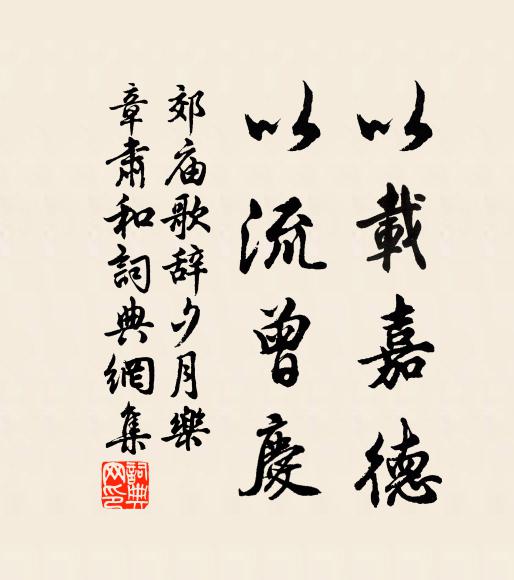 以載嘉德
以流曾慶
郊庙歌辞夕月樂
章肅和詞典網集
詞典网印